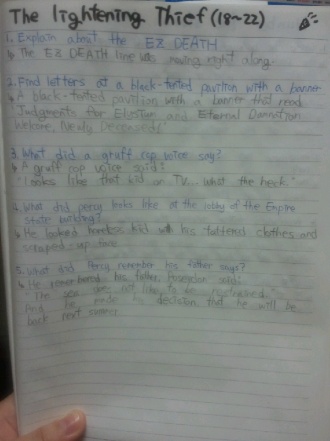 The lightening Thief (18~22)
1. Explain about the EZ DEATH
↳ The EZ DEATH line was moving right along.
2. Find letters at a black-tented pavilion with a banner
↳ A black-tented pavilion with a banner that read
Judgments for Elysium and Eternal Damnation
Welcome, Newly Deceased!"
3. What did a gruff cop voice say?
↳ A gruff cop voice said:
"Looks like that kid on TV... what the heck."
What did percy looks like at the lobby of the Empire
State building?
↳ He looked homeless kid with his tattered clothes and
scraped-up face
5. What did Percy remember his father says?
↳ He remembered his father, poseidon said:
"The sea does not like to be restrained."
And he made his decision that he will be
back next summer.